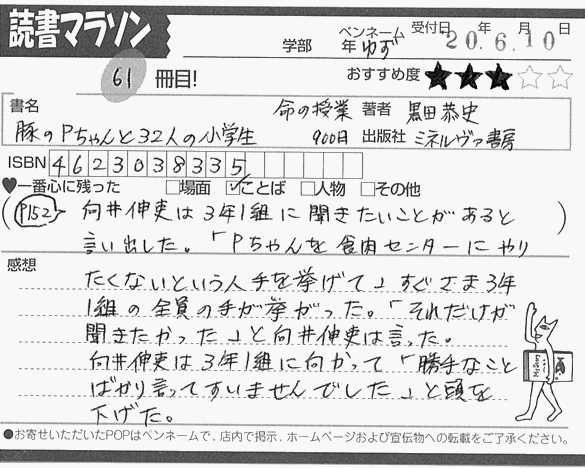 読書マラソン
学部 年 ペンネーム ゆず 受付日 20.年6.月10日
61 冊目! おすすめ度 ★★★☆☆
書名 命の授業 著者 黒田恭史
豚のPちゃんと32人の小学生 900日 出版社 ミネルヴァ書房
ISBN 4623038335
♥一番心に残った □場面 ☑ことば □人物 □その他
(P152) 向井伸吏は3年1組に聞きたいことがあると
言い出した。「Pちゃんを食肉センターにやり
感想
たくないという人手を挙げて」すぐさま3年
1組の全員の手が挙がった。「それだけが
聞きたかった」と向井伸吏は言った。
向井伸吏は3年1組に向かって「勝手なこと
ばかり言ってすいませんでした」と頭を
下げた。
●お寄せいただいたPOPはペンネームで、店内で掲示、ホームページおよび宣伝物への転載をご了承ください。